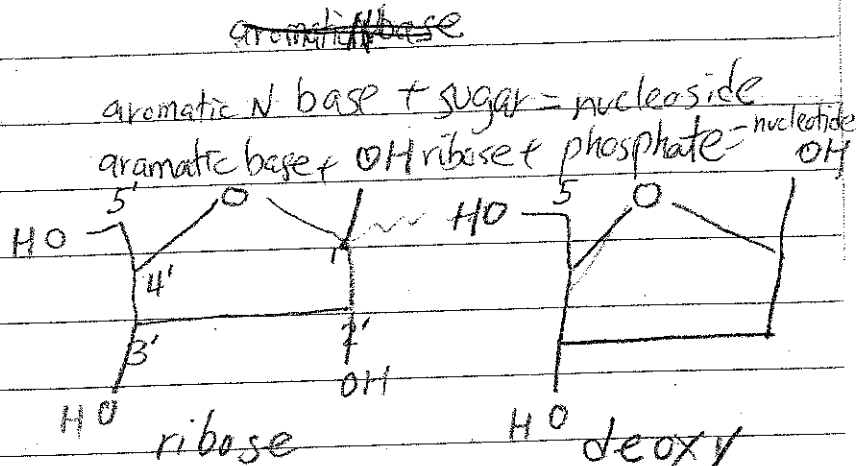 aromatic N base
aromatic N base + sugar = nucleoside
aramatic base + OH ribose + phosphate = nucleotide
5' O HO 5 O OH
HO 4' 1'
3' 2'
HO OH HO
ribose deoxy